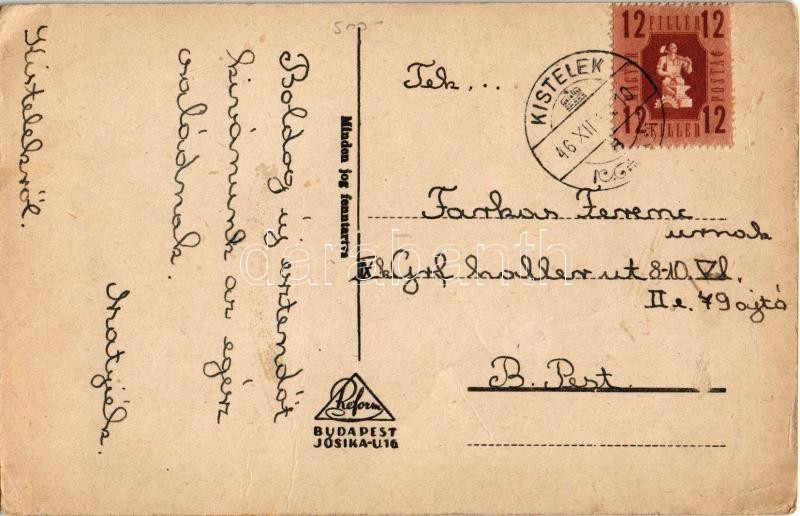 Boldog új esztendőt
kivánunk az egész
családnak.
Matyiék.
Kistelekről.
500-
Minden jog fenntartva
Reform
BUDAPEST
JÓSIKA-U.16
12 FILLÉR 12
MAGYAR POSTA
12 FILLÉR 12
KISTELEK
46 XII
Tek...
Farkas Ferenc
urnak
Grf haller ut 8-10. VI.
II e. 79 ajtó
B. Pest.
darabanth